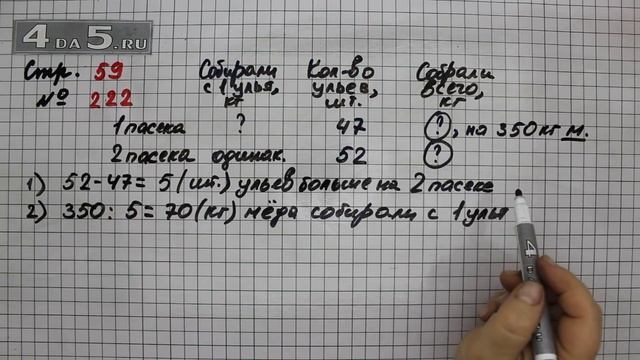 4DA5.RU
Стр. 59 Собирали с 1 улья, кг Кол-во ульев, шт. Собрали всего, кг
№ 222
1 пасека ? 47 ?, на 350 кг м.
2 пасека одинак. 52 ?
1) 52-47= 5 (шт.) ульев больше на 2 пасеке
2) 350 : 5 = 70 (кг) мёда собирали с 1 улья
4